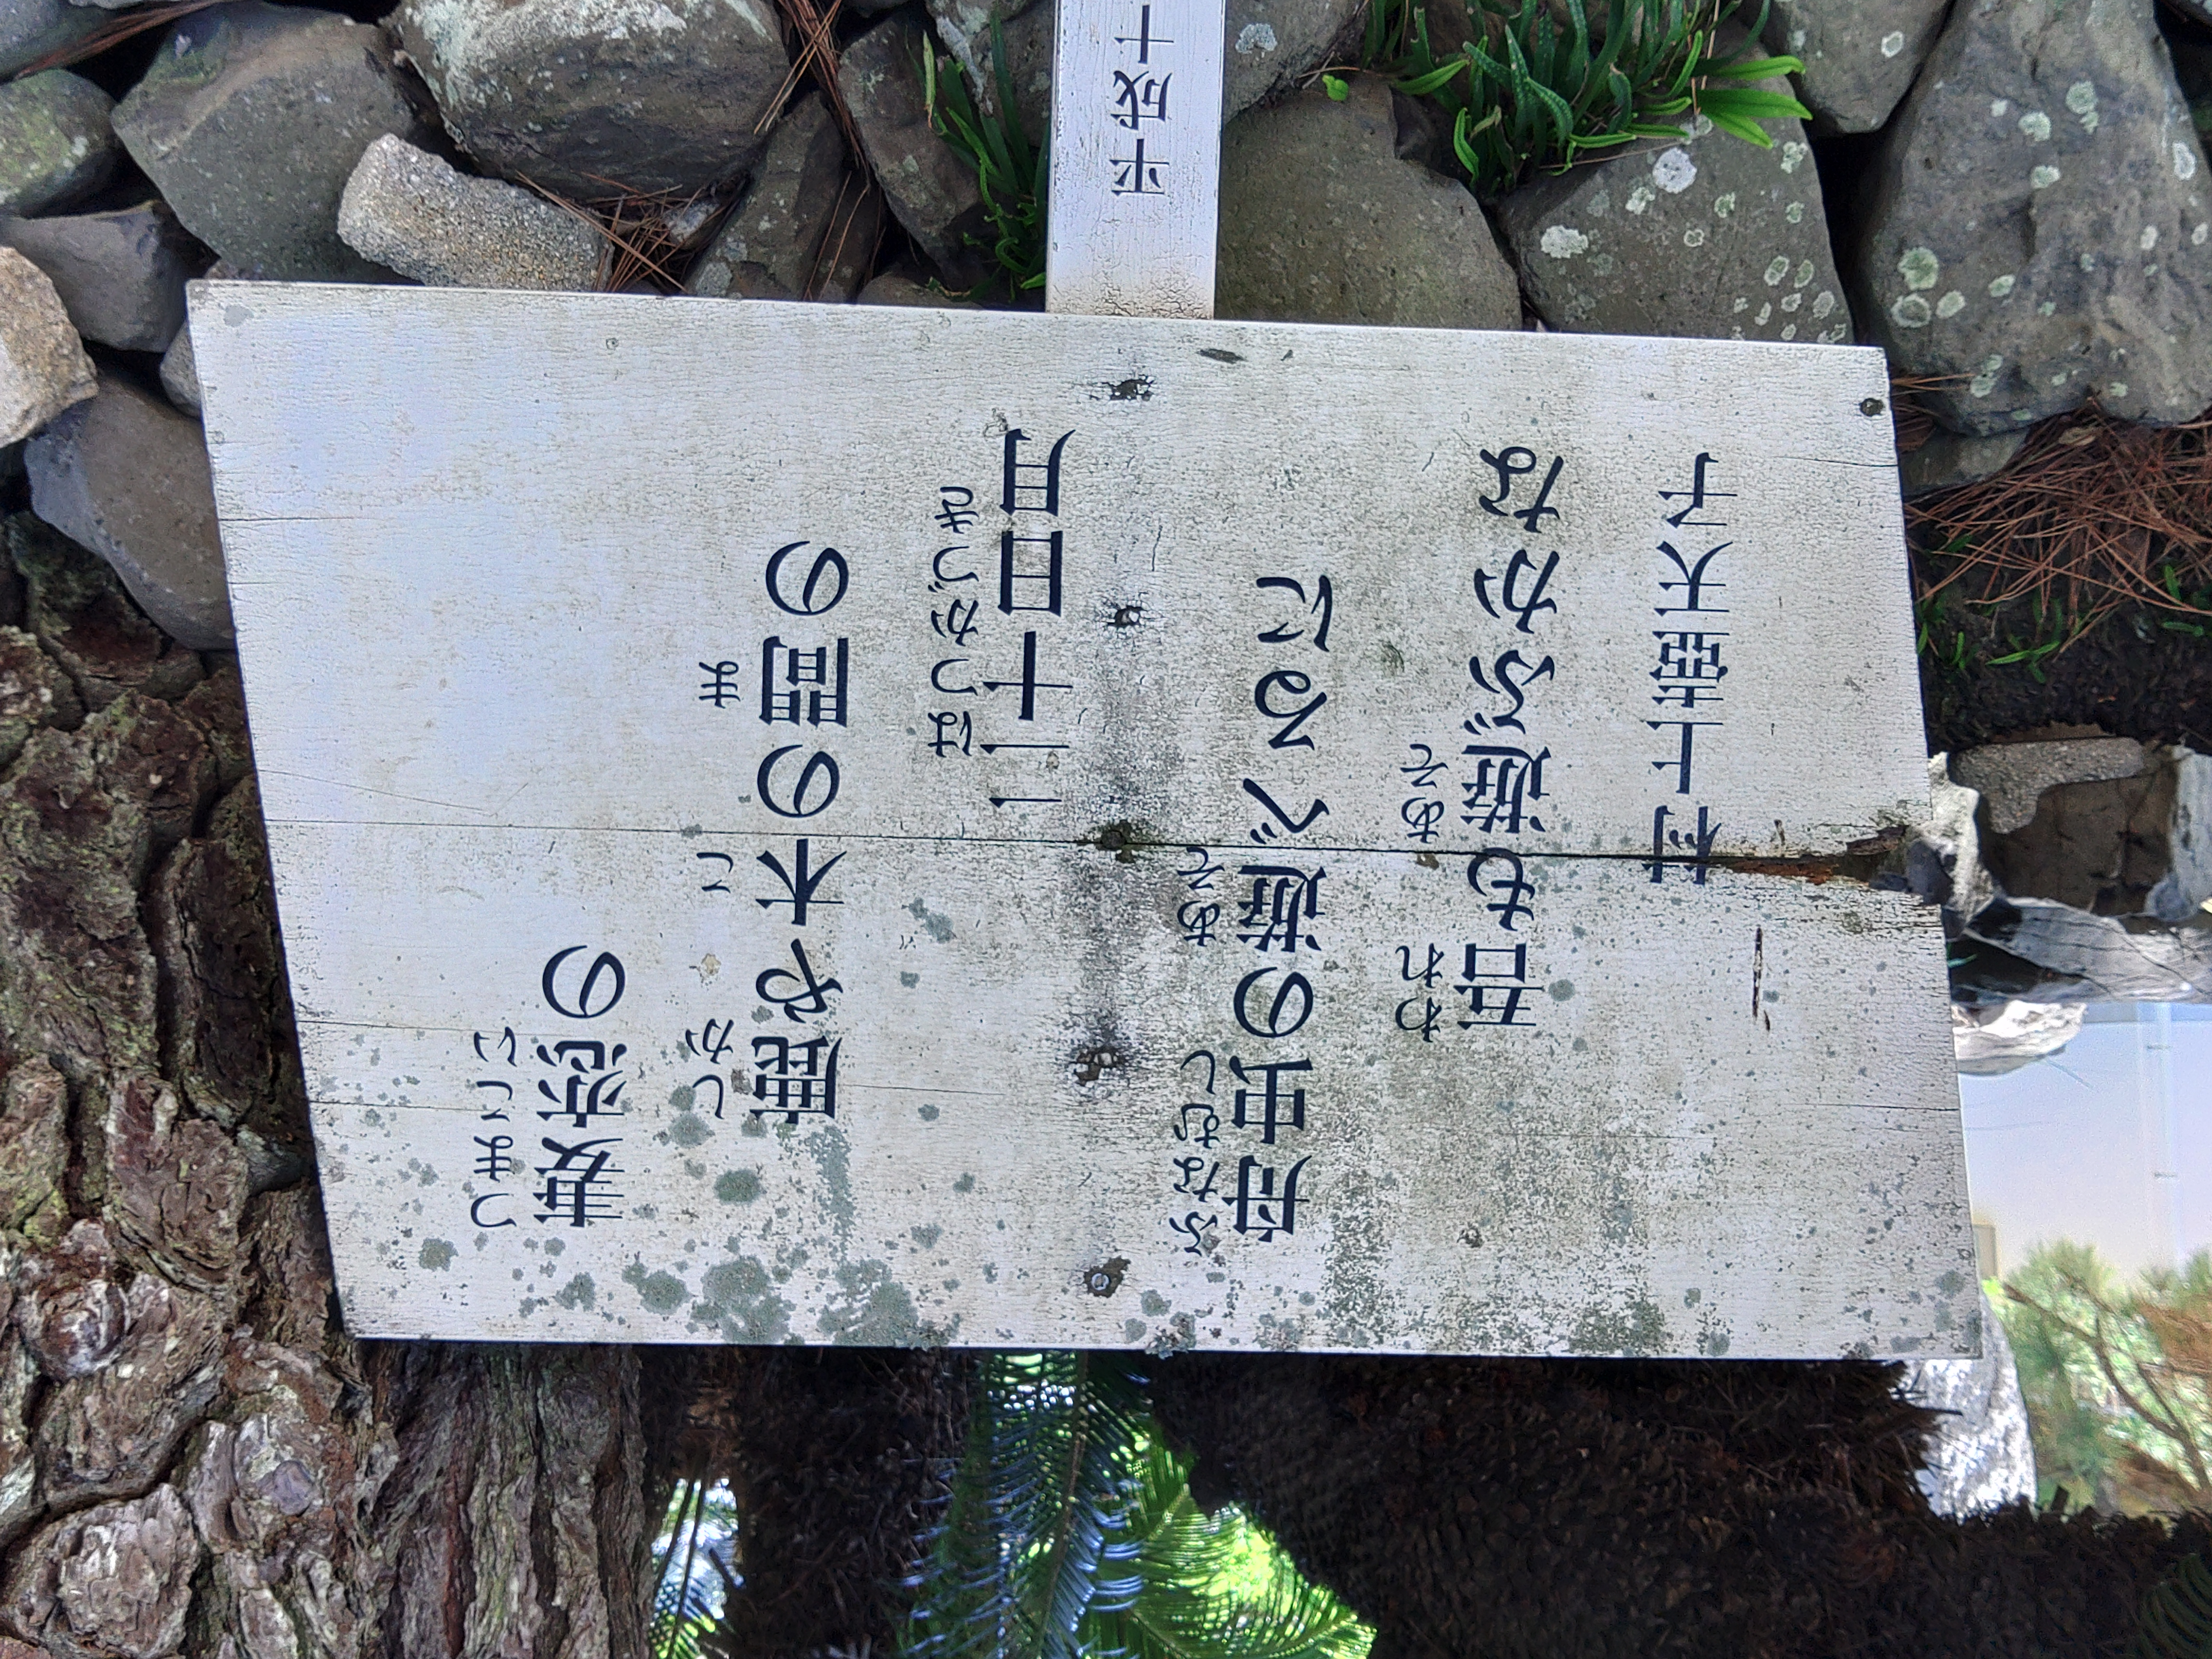 妻恋の
つまこい
鹿や木の間の
しか こ ま
二十日月
はつかづき
舟虫の遊べるに
ふなむし あそ
吾も遊ぶかな
われ あそ
村上壺天子
平成十